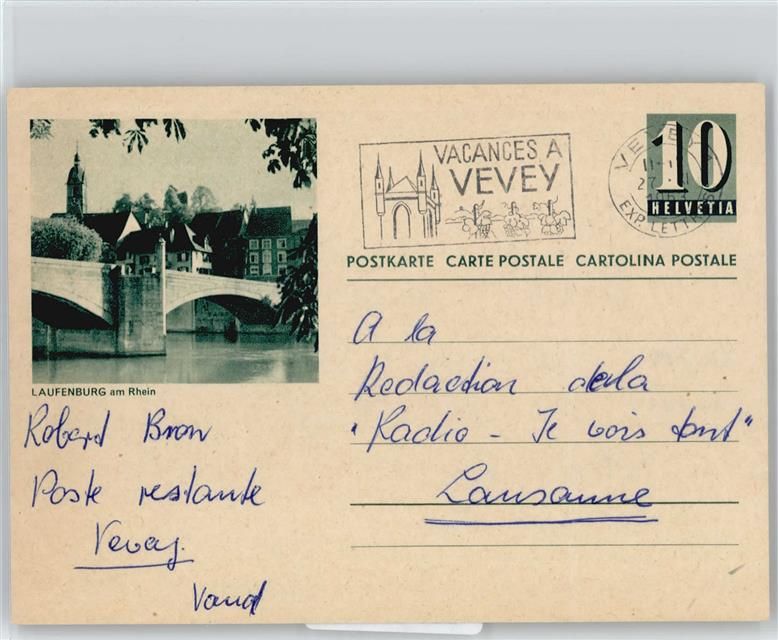 VACANCES A
VEVEY
10
HELVETIA
EXP. LETTR
POSTKARTE CARTE POSTALE CARTOLINA POSTALE
LAUFENBURG am Rhein
A la
Redaction de la
"Radio - Je vois tout"
Lausanne
Robert Bron
Poste restante
Vevey
Vaud